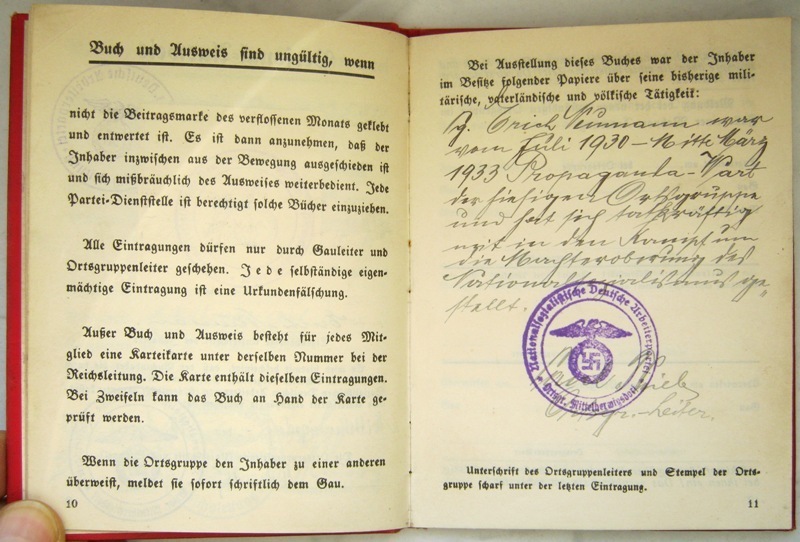 Buch und Ausweis sind ungültig, wenn
nicht die Beitragsmarke des verflossenen Monats geklebt
und entwertet ist. Es ist dann anzunehmen, daß der
Inhaber inzwischen aus der Bewegung ausgeschieden ist
und sich mißbräuchlich des Ausweises weiterbedient. Jede
Partei-Dienststelle ist berechtigt solche Bücher einzuziehen.
Alle Eintragungen dürfen nur durch Gauleiter und
Ortsgruppenleiter geschehen. Jede selbständige eigen-
mächtige Eintragung ist eine Urkundenfälschung.
Außer Buch und Ausweis besteht für jedes Mit-
glied eine Karteikarte unter derselben Nummer bei der
Reichsleitung. Die Karte enthält dieselben Eintragungen.
Bei Zweifeln kann das Buch an Hand der Karte ge-
prüft werden.
Wenn die Ortsgruppe den Inhaber zu einer anderen
überweist, meldet sie sofort schriftlich dem Gau.
10
Bei Ausstellung dieses Buches war der Inhaber
im Besitze folgender Papiere über seine bisherige mili-
tärische, vaterländische und völkische Tätigkeit:
Pg. Erich Neumann war
vom Juli 1930 - Mitte März
1933 Propaganda-Wart
der hiesigen Ortsgruppe
und hat sich tatkräftig
mit in den Kampf um
die Machteroberung des
Nationalsozialismus ge-
stellt.
Nationalsozialistische Deutsche Arbeiterpartei
Ortsgr. Mittelherwigsdorf
Ortsgr.-Leiter.
Unterschrift des Ortsgruppenleiters und Stempel der Orts-
gruppe scharf unter der letzten Eintragung.
11